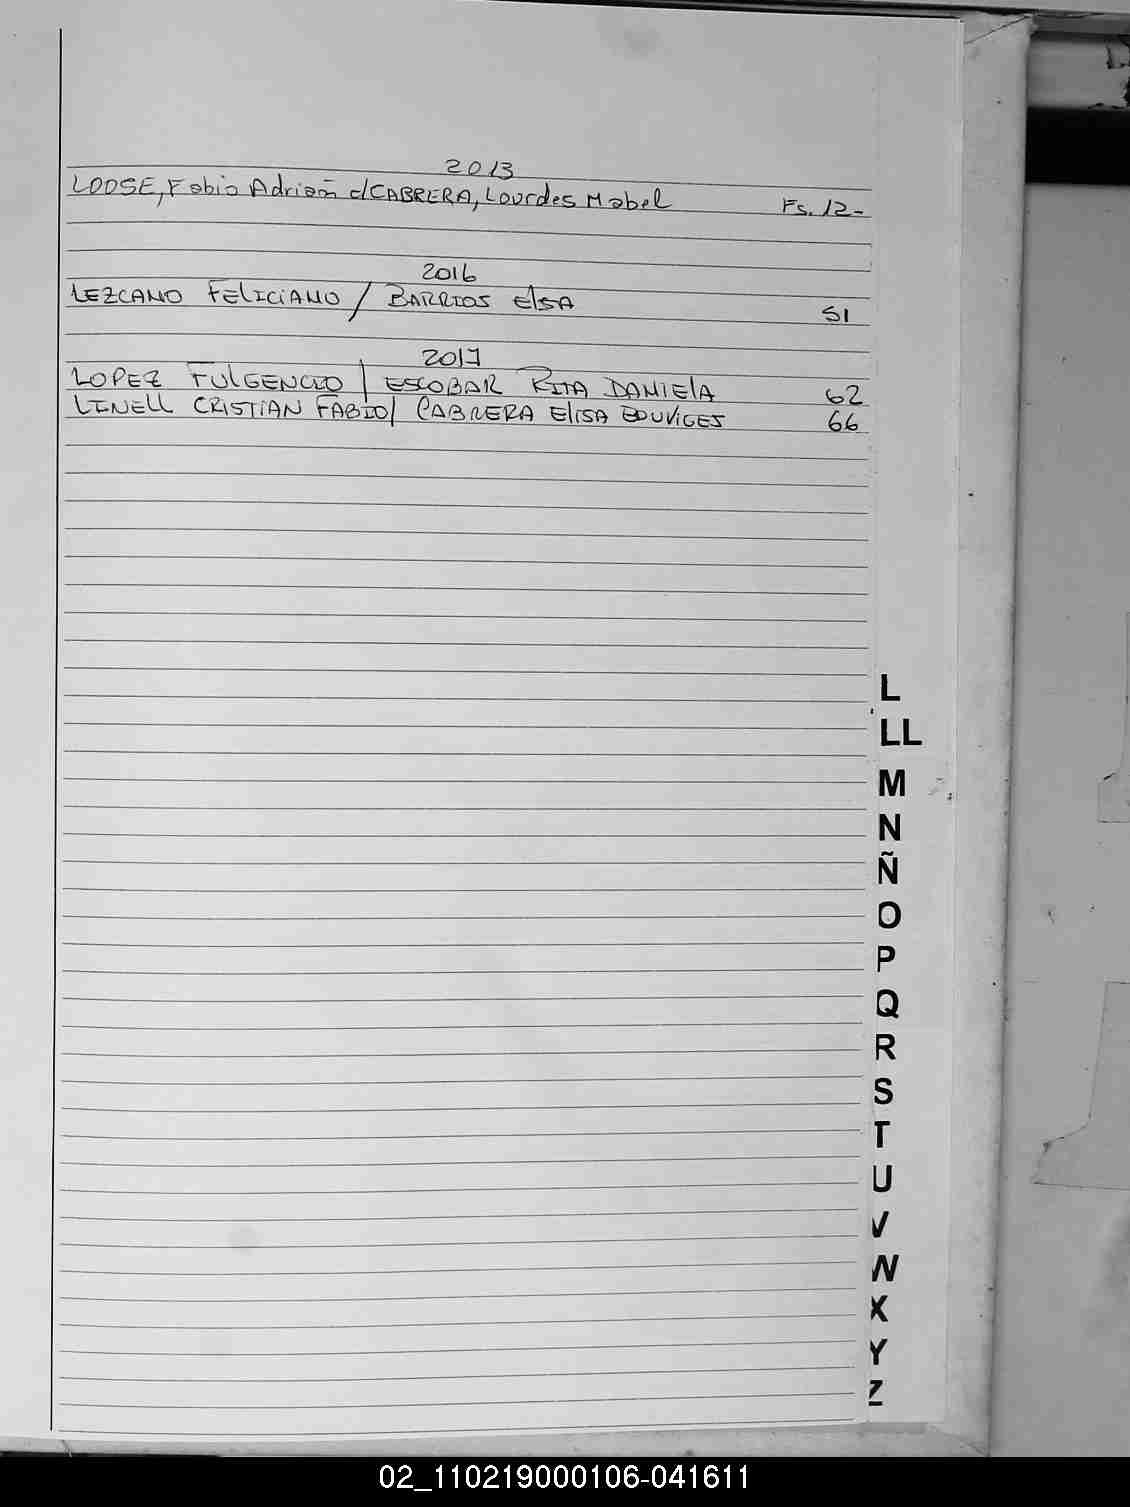 2013
LOOSE, Fabio Adrián c/CABRERA, Lourdes Mabel Fs. 12-
2016
LEZCANO FELICIANO / BARRIOS ElSA 51
2017
LOPEZ FULGENCIO | ESCOBAR RITA DANIElA 62
LINELL CRISTIAN FABIO/ CABRERA ElISA EDUVIGES 66
L
LL
M
N
Ñ
O
P
Q
R
S
T
U
V
W
X
Y
Z
02_110219000106-041611